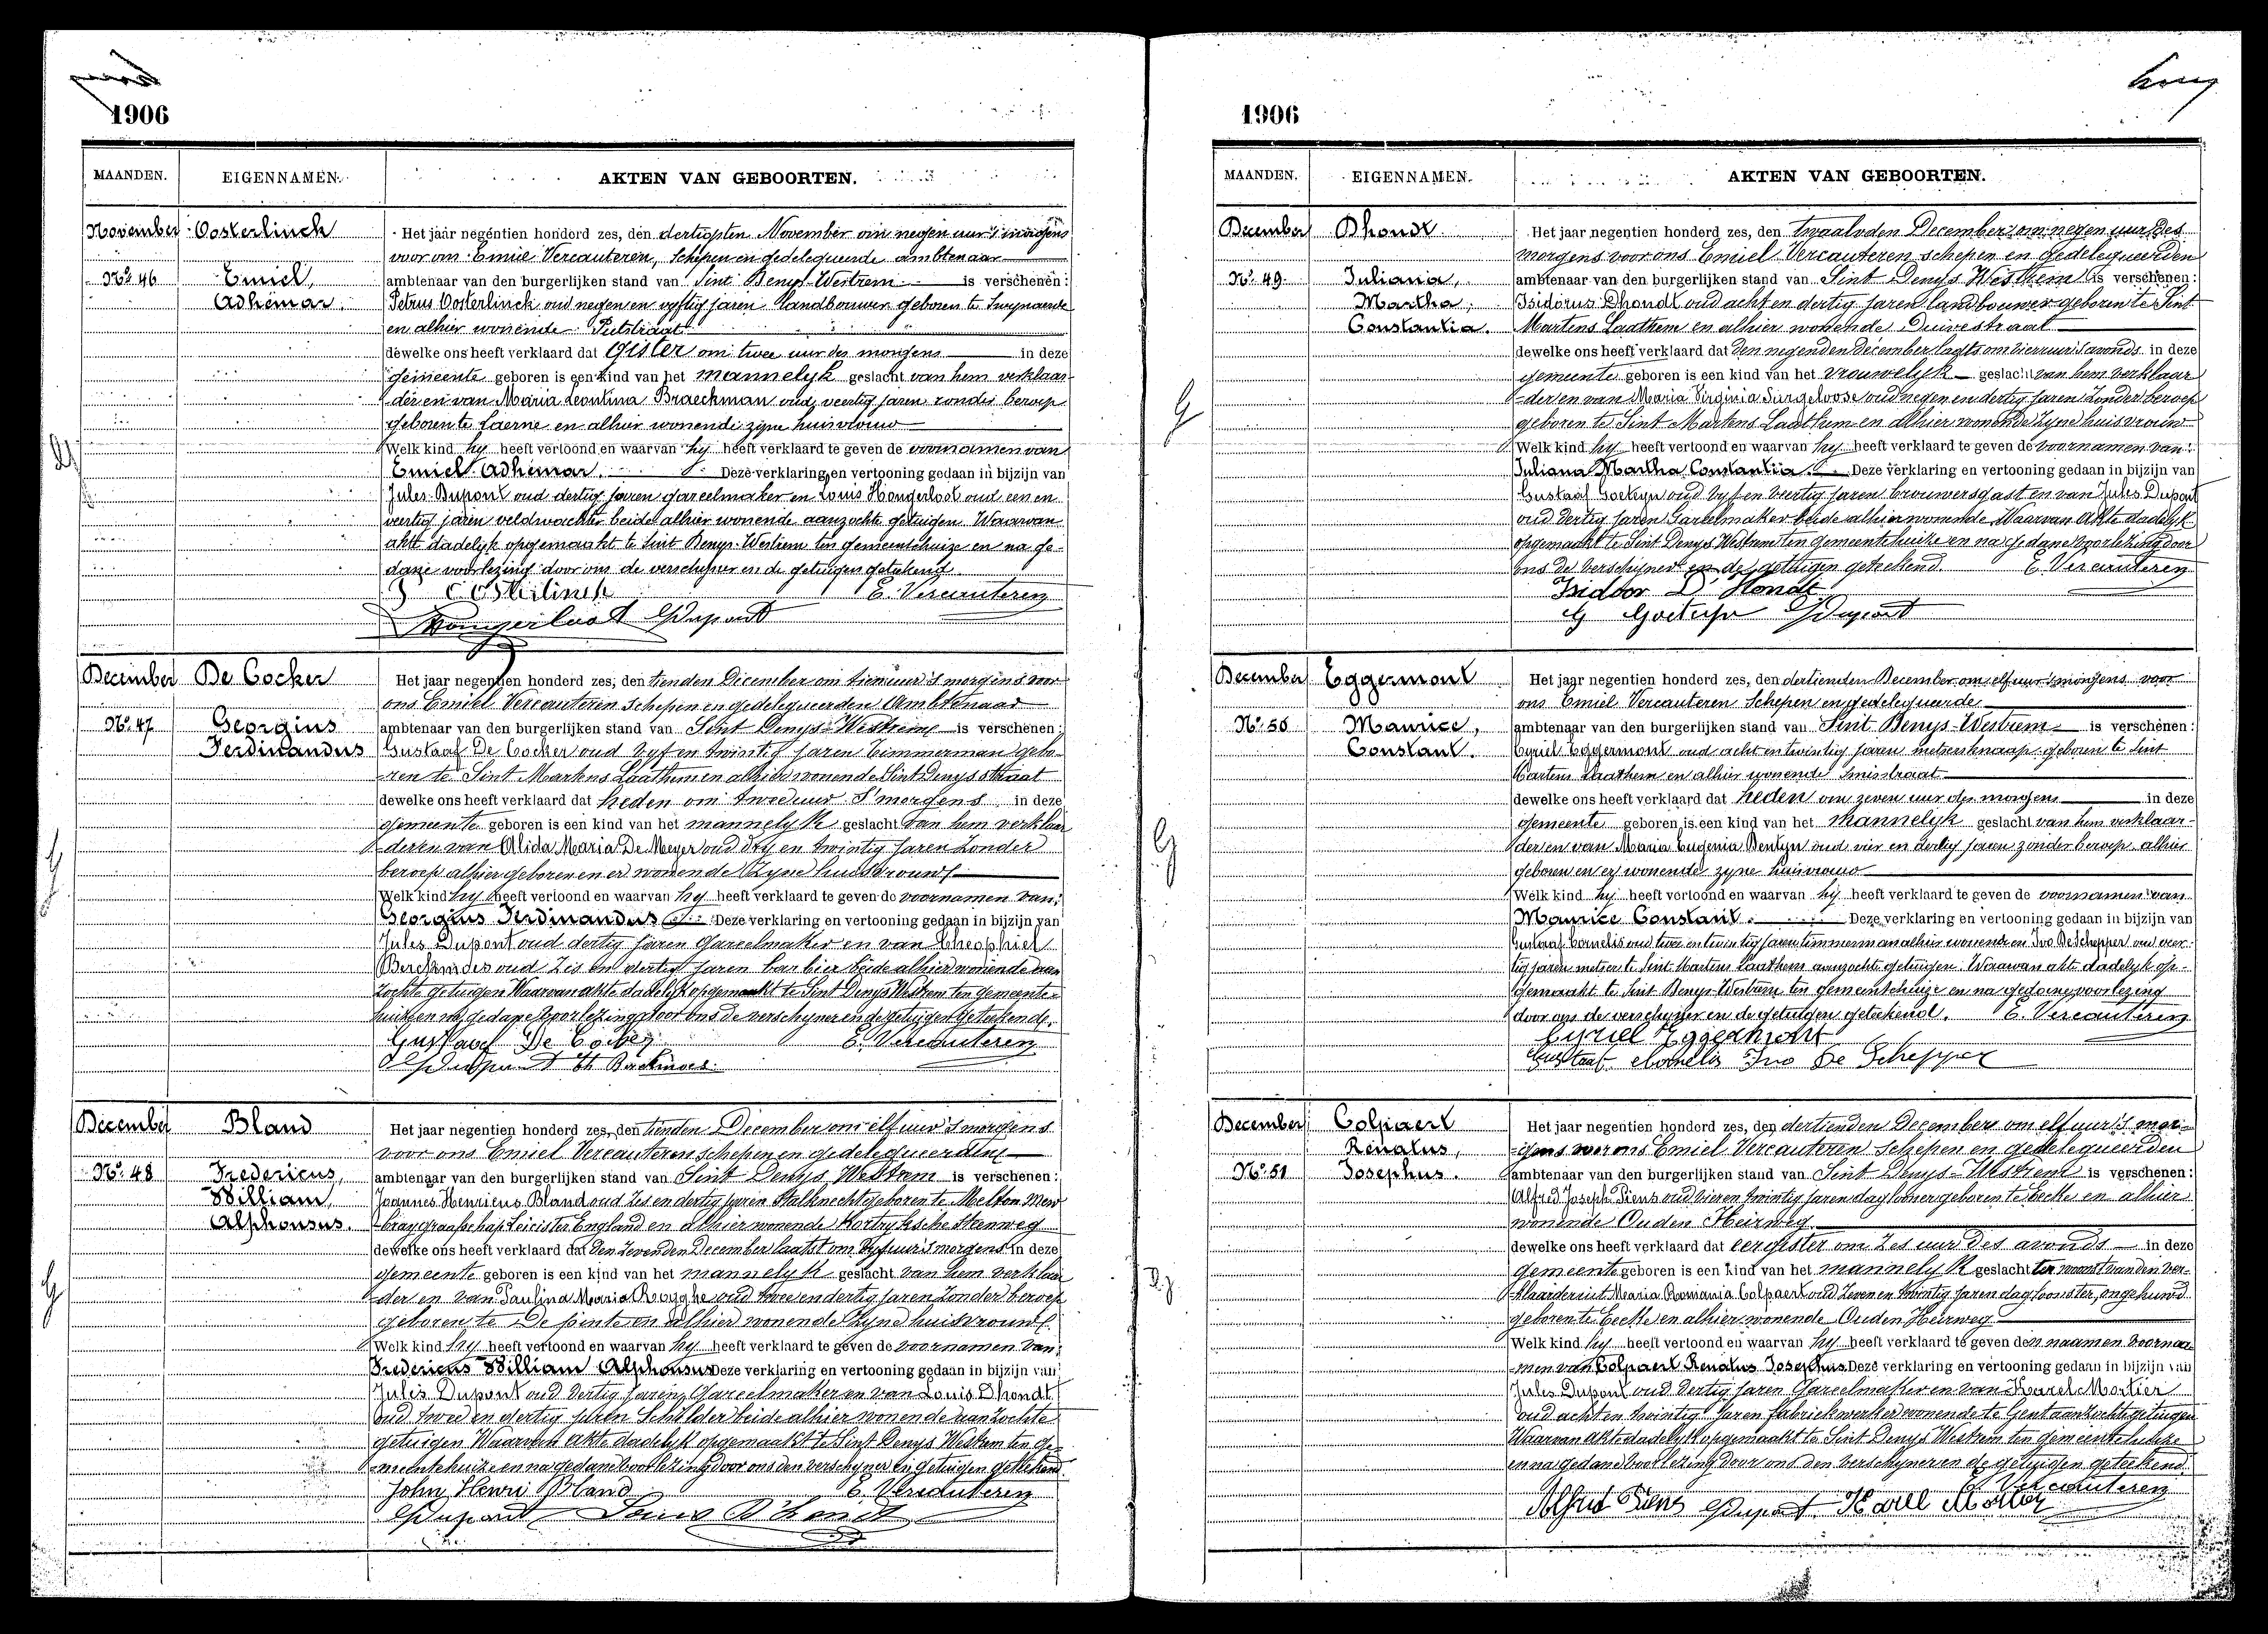 1906
MAANDEN. EIGENNAMEN. AKTEN VAN GEBOORTEN.
November Oosterlinck
Nº 46 Emiel,
Adhemar.
Het jaar negentien honderd zes, den dertigsten November om negen uur 's morgens
voor ons Emiel Vercauteren, Schepen en gedelegueerde ambtenaar
ambtenaar van den burgerlijken stand van Sint Denys-Westrem is verschenen:
Petrus Oosterlinck oud negen en vyftig jaren landbouwer geboren te Swynaerde
en alhier wonende Putstraat
dewelke ons heeft verklaard dat Gister om twee uur des morgens in deze
gemeente geboren is een kind van het mannelyk geslacht van hem verklaar-
der en van Maria Leontina Braeckman oud veertig jaren zonder beroep
geboren te Laerne en alhier wonende zyne huisvrouw
Welk kind hy heeft vertoond en waarvan hy heeft verklaard te geven de voornamen van
Emiel Adhemar. Deze verklaring en vertooning gedaan in bijzijn van
Jules Dupont oud dertig jaren gareelmaker en Louis Hongerloot oud een en
veertig jaren veldwachter beide alhier wonende aanzochte getuigen. Waarvan
akte dadelyk opgemaakt te Sint Denys-Westrem ten gemeentehuize en na ge-
dane voorlezing door ons de verschyner en de getuigen geteekend.
P Oosterlinck E. Vercauteren
Hongerloot JDupont
December De Cocker
Nº 47 Georgius
Ferdinandus
Het jaar negentien honderd zes, den tienden December om tien uur 's morgens voor
ons Emiel Vercauteren schepen en gedelegueerden Ambtenaar
ambtenaar van den burgerlijken stand van Sint Denys-Westrem is verschenen:
Gustaaf De Cocker oud vyf en twintig jaren timmerman gebo-
ren te Sint Martens Laathem en alhier wonende Sint Denysstraat
dewelke ons heeft verklaard dat heden om twee uur 's morgens in deze
gemeente geboren is een kind van het mannelyk geslacht van hem verklaar
der en van Alida Maria De Meyer oud dry en twintig jaren zonder
beroep alhier geboren en er wonende Zyne huisvrouw
Welk kind hy heeft vertoond en waarvan hy heeft verklaard te geven de voornamen van:
Georgius Ferdinandus Deze verklaring en vertooning gedaan in bijzijn van
Jules Dupont oud dertig jaren Gareelmaker en van Theophiel
oud Zes en dertig jaren barbier beide alhier wonende aan
zochte getuigen Waarvan akte dadelyk opgemaakt te Sint Denys Westrem ten gemeente-
huize en na gedane voorlezing door ons de verschyner en de getuigen geteekend.
Gustaaf De Cocker E. Vercauteren
JDupont Th
December Bland
Nº 48 Fredericus,
William,
Alphonsus.
Het jaar negentien honderd zes, den tienden December om elf uur 's morgens
voor ons Emiel Vercauteren schepen en gedelegueerden
ambtenaar van den burgerlijken stand van Sint Denys Westrem is verschenen:
Joannes Henricus Bland oud Zes en dertig jaren Stalknecht geboren te Melton Mow
bray graafschap Leicister England en alhier wonende Kortryksche Steenweg
dewelke ons heeft verklaard dat den zevenden December laatst om vyf uur 's morgens in deze
gemeente geboren is een kind van het mannelyk geslacht van hem verklaar
der en van Paulina Maria Rogghe oud twee en dertig jaren zonder beroep
geboren te De pinte en alhier wonende Zyne huisvrouw
Welk kind hy heeft vertoond en waarvan hy heeft verklaard te geven de voornamen van:
Fredericus William Alphonsus Deze verklaring en vertooning gedaan in bijzijn van
Jules Dupont oud dertig jaren, Gareelmaker en van Louis Dhondt
oud twee en dertig jaren Schilder beide alhier wonende aanzochte
getuigen Waarvan akte dadelyk opgemaakt te Sint Denys Westrem ten ge-
meentehuize en na gedane voorlezing door ons den verschyner en getuigen geteekend.
John Henri Bland E. Vercauteren
JDupont Louis D'hondt
1906
MAANDEN. EIGENNAMEN. AKTEN VAN GEBOORTEN.
December Dhondt
Nº 49 Juliana,
Martha,
Constantia.
Het jaar negentien honderd zes, den twaalvden December om negen uur des
morgens voor ons Emiel Vercauteren schepen en gedelegueerden
ambtenaar van den burgerlijken stand van Sint Denys Westrem is verschenen:
Isidorus Dhondt oud acht en dertig jaren landbouwer geboren te Sint
Martens Laathem en alhier wonende Duivestraat
dewelke ons heeft verklaard dat den negenden december laatst om vier uur 's avonds in deze
gemeente geboren is een kind van het vrouwelyk geslacht van hem verklaar
der en van Maria Virginia Surgeloose oud negen en dertig jaren Zonder beroep
geboren te Sint Martens Laathem en alhier wonende Zyne huisvrouw
Welk kind hy heeft vertoond en waarvan hy heeft verklaard te geven de voornamen van:
Juliana Martha Constantia. Deze verklaring en vertooning gedaan in bijzijn van
Gustaaf Goeteyn oud vyf en veertig jaren brouwersgast en van Jules Dupont
oud dertig jaren Gareelmaker beide alhier wonende Waarvan Akte dadelyk
opgemaakt te Sint Denys Westrem ten gemeentehuize en na gedane voorlezing door
ons de verschyner en de getuigen geteekend. E. Vercauteren
Isidoor D'Hondt
G Goeteyn JDupont
December Eggermont
Nº 50 Maurice,
Constant.
Het jaar negentien honderd zes, den dertienden December om elf uur 's morgens voor
ons Emiel Vercauteren Schepen en gedelegueerde
ambtenaar van den burgerlijken stand van Sint Denys-Westrem is verschenen:
Cyriel Eggermont oud acht en twintig jaren metsersknaap geboren te Sint
Martens Laathem en alhier wonende Smisstraat
dewelke ons heeft verklaard dat heden om zeven uur des morgens in deze
gemeente geboren is een kind van het mannelyk geslacht van hem verklaar-
der en van Maria Eugenia Bentyn oud vier en dertig jaren zonder beroep alhier
geboren en er wonende zyne huisvrouw
Welk kind hy heeft vertoond en waarvan hy heeft verklaard te geven de voornamen van
Maurice Constant. Deze verklaring en vertooning gedaan in bijzijn van
Gustaaf Cornelis oud twee en twintig jaren timmerman alhier wonende en Ivo De Schepper oud veer-
tig jaren metser te Sint Martens Laathem aanzochte getuigen. Waarvan akte dadelyk op-
gemaakt te Sint Denys-Westrem ten gemeentehuize en na gedane voorlezing
door ons de verschyner en de getuigen geteekend. E. Vercauteren
Cyriel Eggermont
Gustaaf Cornelis Ivo De Schepper
December Colpaert
Renatus,
Nº 51 Josephus.
Het jaar negentien honderd zes, den dertienden December om elf uur 's mor-
gens voor ons Emiel Vercauteren schepen en gedelegueerden
ambtenaar van den burgerlijken stand van Sint Denys-Westrem is verschenen:
Alfred Joseph Piens oud vier en twintig jaren daglooner geboren te Eecke en alhier
wonende Ouden Heirweg
dewelke ons heeft verklaard dat eergister om Zes uur des avonds in deze
gemeente geboren is een kind van het mannelyk geslacht ter woonst van den ver-
klaarder uit Maria Romania Colpaert oud Zeven en twintig jaren dagloonster, ongehuwd
geboren te Eecke en alhier wonende Ouden Heirweg
Welk kind hy heeft vertoond en waarvan hy heeft verklaard te geven den naamen voorna-
men van Colpaert Renatus Josephus Deze verklaring en vertooning gedaan in bijzijn van
Jules Dupont oud dertig jaren Gareelmaker en van Karel Mortier
oud acht en twintig jaren fabriekwerker wonende te Gent aanzochte getuigen
Waarvan akte dadelyk opgemaakt te Sint Denys Westrem ten gemeentehuize
en na gedane voorlezing door ons den verschyner en de getuigen geteekend.
E. Vercauteren
Alfred Piens JDupont Karel Mortier